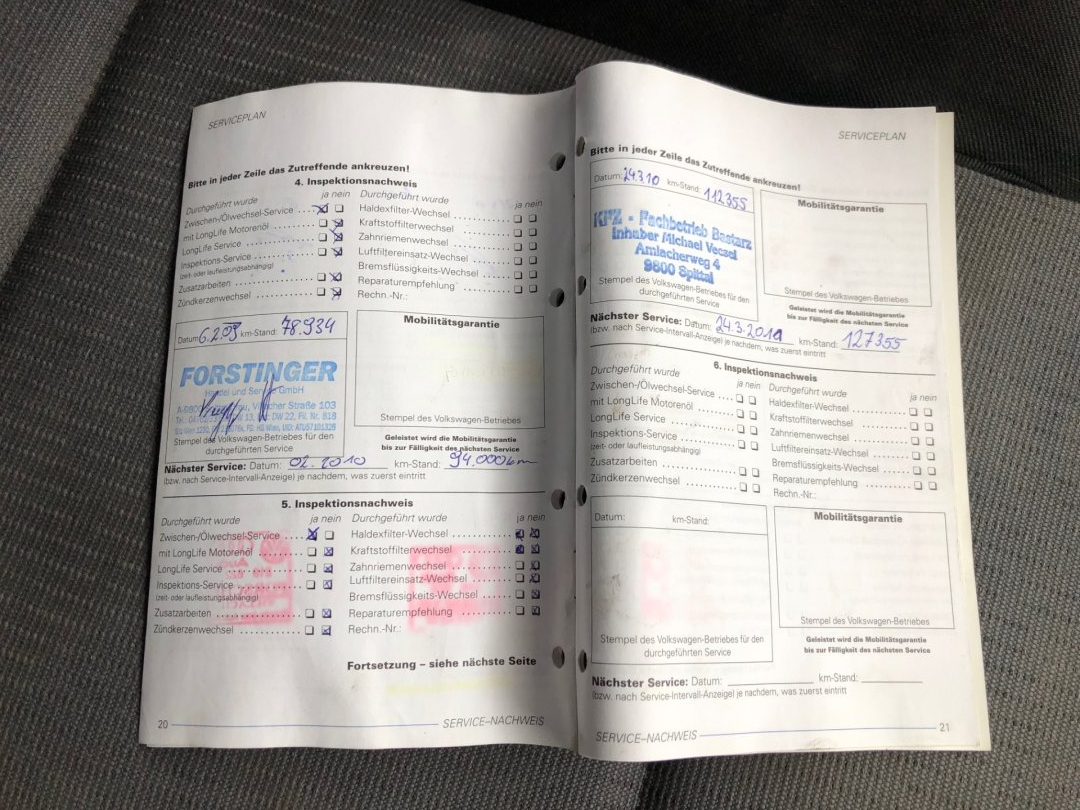 SERVICEPLAN
Bitte in jeder Zeile das Zutreffende ankreuzen!
4. Inspektionsnachweis
Durchgeführt wurde ja nein
Zwischen-/Ölwechsel-Service
mit LongLife Motorenöl
LongLife Service
Inspektions-Service
(zeit- oder laufleistungsabhängig)
Zusatzarbeiten
Zündkerzenwechsel
Durchgeführt wurde ja nein
Haldexfilter-Wechsel
Kraftstoffilterwechsel
Zahnriemenwechsel
Luftfiltereinsatz-Wechsel
Bremsflüssigkeits-Wechsel
Reparaturempfehlung
Rechn.-Nr.:
Datum: 6.2.09 km-Stand: 78.934
FORSTINGER
Handel und Service GmbH
Straße 103
Stempel des Volkswagen-Betriebes für den
durchgeführten Service
Mobilitätsgarantie
Stempel des Volkswagen-Betriebes
Geleistet wird die Mobilitätsgarantie
bis zur Fälligkeit des nächsten Service
Nächster Service: Datum: 02.2010 km-Stand: 94.000km
(bzw. nach Service-Intervall-Anzeige) je nachdem, was zuerst eintritt
5. Inspektionsnachweis
Durchgeführt wurde ja nein
Zwischen-/Ölwechsel-Service
mit LongLife Motorenöl
LongLife Service
Inspektions-Service
(zeit- oder laufleistungsabhängig)
Zusatzarbeiten
Zündkerzenwechsel
Durchgeführt wurde ja nein
Haldexfilter-Wechsel
Kraftstoffilterwechsel
Zahnriemenwechsel
Luftfiltereinsatz-Wechsel
Bremsflüssigkeits-Wechsel
Reparaturempfehlung
Rechn.-Nr.:
Fortsetzung – siehe nächste Seite
20 SERVICE–NACHWEIS
SERVICEPLAN
Bitte in jeder Zeile das Zutreffende ankreuzen!
Datum: 24.3.10 km-Stand: 112355
KFZ - Fachbetrieb Bastarz
Inhaber Michael Vecsei
Amlacherweg 4
9800 Spittal
Stempel des Volkswagen-Betriebes für den
durchgeführten Service
Mobilitätsgarantie
Stempel des Volkswagen-Betriebes
Geleistet wird die Mobilitätsgarantie
bis zur Fälligkeit des nächsten Service
Nächster Service: Datum: 24.3.2011 km-Stand: 127355
(bzw. nach Service-Intervall-Anzeige) je nachdem, was zuerst eintritt
6. Inspektionsnachweis
Durchgeführt wurde ja nein
Zwischen-/Ölwechsel-Service
mit LongLife Motorenöl
LongLife Service
Inspektions-Service
(zeit- oder laufleistungsabhängig)
Zusatzarbeiten
Zündkerzenwechsel
Durchgeführt wurde ja nein
Haldexfilter-Wechsel
Kraftstoffilterwechsel
Zahnriemenwechsel
Luftfiltereinsatz-Wechsel
Bremsflüssigkeits-Wechsel
Reparaturempfehlung
Rechn.-Nr.:
Datum: km-Stand:
Stempel des Volkswagen-Betriebes für den
durchgeführten Service
Mobilitätsgarantie
Stempel des Volkswagen-Betriebes
Geleistet wird die Mobilitätsgarantie
bis zur Fälligkeit des nächsten Service
Nächster Service: Datum: km-Stand:
(bzw. nach Service-Intervall-Anzeige) je nachdem, was zuerst eintritt
SERVICE–NACHWEIS 21